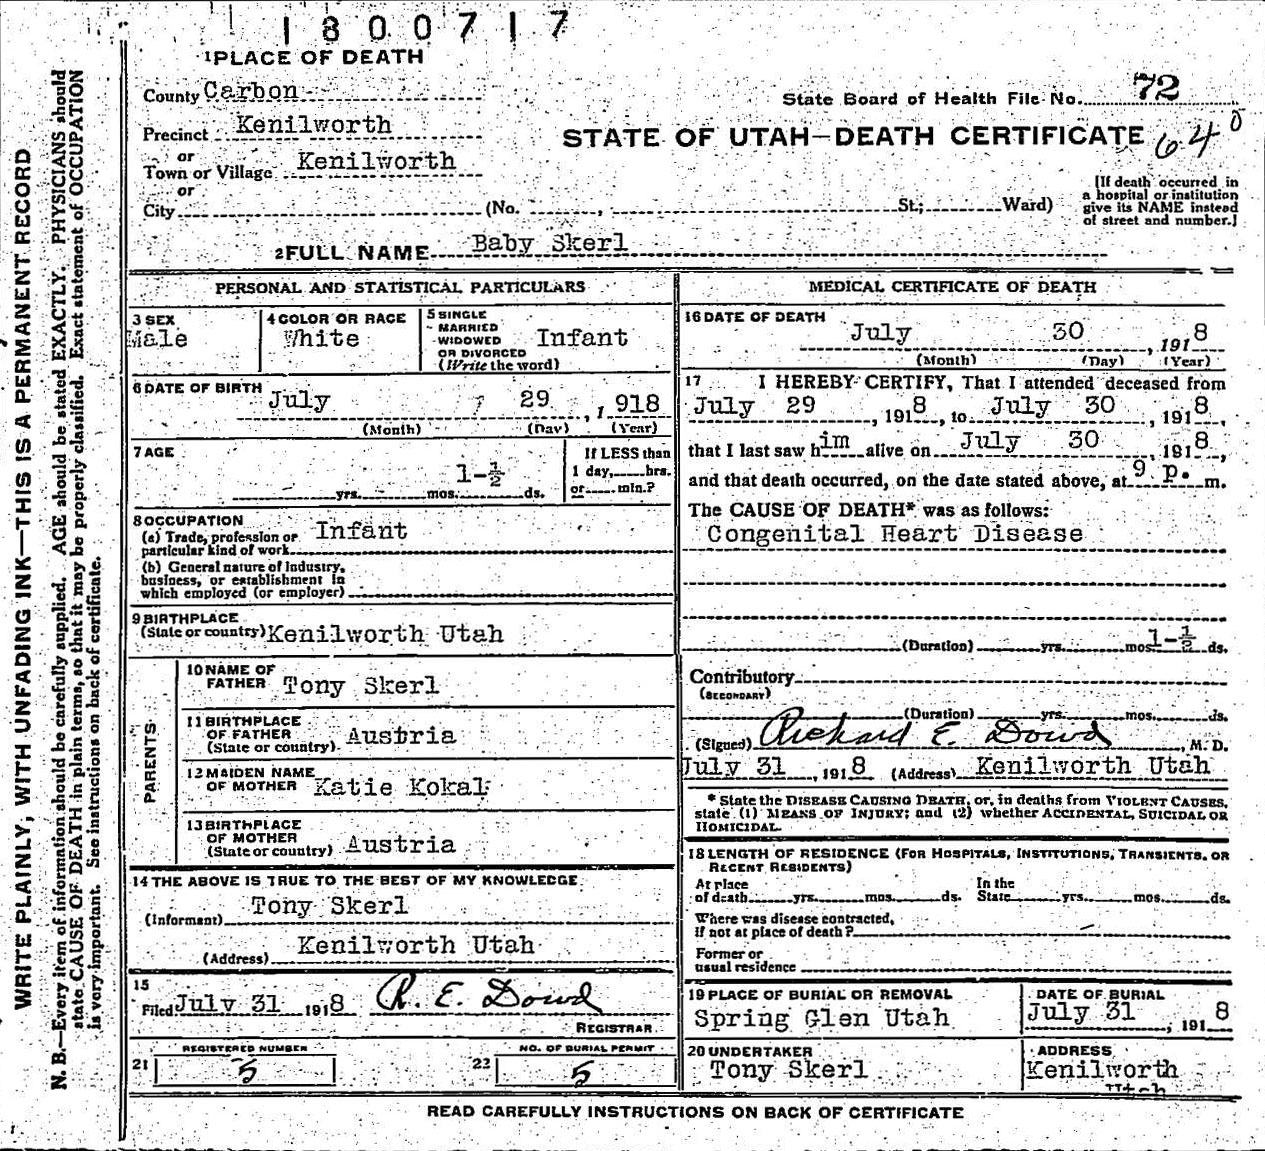 1800717
1 PLACE OF DEATH
County Carbon
State Board of Health File No. 72
Precinct Kenilworth
STATE OF UTAH—DEATH CERTIFICATE 640
or
Town or Village Kenilworth
or
City (No. , St.; Ward)
[If death occurred in
a hospital or institution
give its NAME instead
of street and number.]
2 FULL NAME Baby Skerl
PERSONAL AND STATISTICAL PARTICULARS
3 SEX
Male
4 COLOR OR RACE
White
5 SINGLE
MARRIED
WIDOWED
OR DIVORCED
(Write the word)
Infant
6 DATE OF BIRTH
July 29, 1918
(Month) (Day) (Year)
7 AGE
1-½
yrs. mos. ds.
If LESS than
1 day, hrs.
or min.?
8 OCCUPATION
(a) Trade, profession or
particular kind of work Infant
(b) General nature of Industry,
business, or establishment in
which employed (or employer)
9 BIRTHPLACE
(State or country) Kenilworth Utah
PARENTS
10 NAME OF
FATHER Tony Skerl
11 BIRTHPLACE
OF FATHER
(State or country) Austria
12 MAIDEN NAME
OF MOTHER Katie Kokal
13 BIRTHPLACE
OF MOTHER
(State or country) Austria
14 THE ABOVE IS TRUE TO THE BEST OF MY KNOWLEDGE
(Informant) Tony Skerl
(Address) Kenilworth Utah
15
Filed July 31 1918 R. E. Dowd
REGISTRAR
21 REGISTERED NUMBER
5
22 NO. OF BURIAL PERMIT
5
MEDICAL CERTIFICATE OF DEATH
16 DATE OF DEATH
July 30, 1918
(Month) (Day) (Year)
17 I HEREBY CERTIFY, That I attended deceased from
July 29, 1918, to July 30, 1918,
that I last saw him alive on July 30, 1918,
and that death occurred, on the date stated above, at 9 p. m.
The CAUSE OF DEATH* was as follows:
Congenital Heart Disease
(Duration) yrs. mos. 1-½ ds.
Contributory
(SECONDARY)
(Duration) yrs. mos. ds.
(Signed) Richard E. Dowd, M. D.
July 31, 1918 (Address) Kenilworth Utah
* State the DISEASE CAUSING DEATH, or, in deaths from VIOLENT CAUSES,
state (1) MEANS OF INJURY; and (2) whether ACCIDENTAL, SUICIDAL OR
HOMICIDAL.
18 LENGTH OF RESIDENCE (FOR HOSPITALS, INSTITUTIONS, TRANSIENTS, OR
RECENT RESIDENTS)
At place
of death yrs. mos. ds.
In the
State yrs. mos. ds.
Where was disease contracted,
if not at place of death?
Former or
usual residence
19 PLACE OF BURIAL OR REMOVAL
Spring Glen Utah
DATE OF BURIAL
July 31, 1918
20 UNDERTAKER
Tony Skerl
ADDRESS
Kenilworth
Utah
READ CAREFULLY INSTRUCTIONS ON BACK OF CERTIFICATE
WRITE PLAINLY, WITH UNFADING INK—THIS IS A PERMANENT RECORD
N. B.—Every item of information should be carefully supplied. AGE should be stated EXACTLY. PHYSICIANS should
state CAUSE OF DEATH in plain terms, so that it may be properly classified. Exact statement of OCCUPATION
is very important. See instructions on back of certificate.